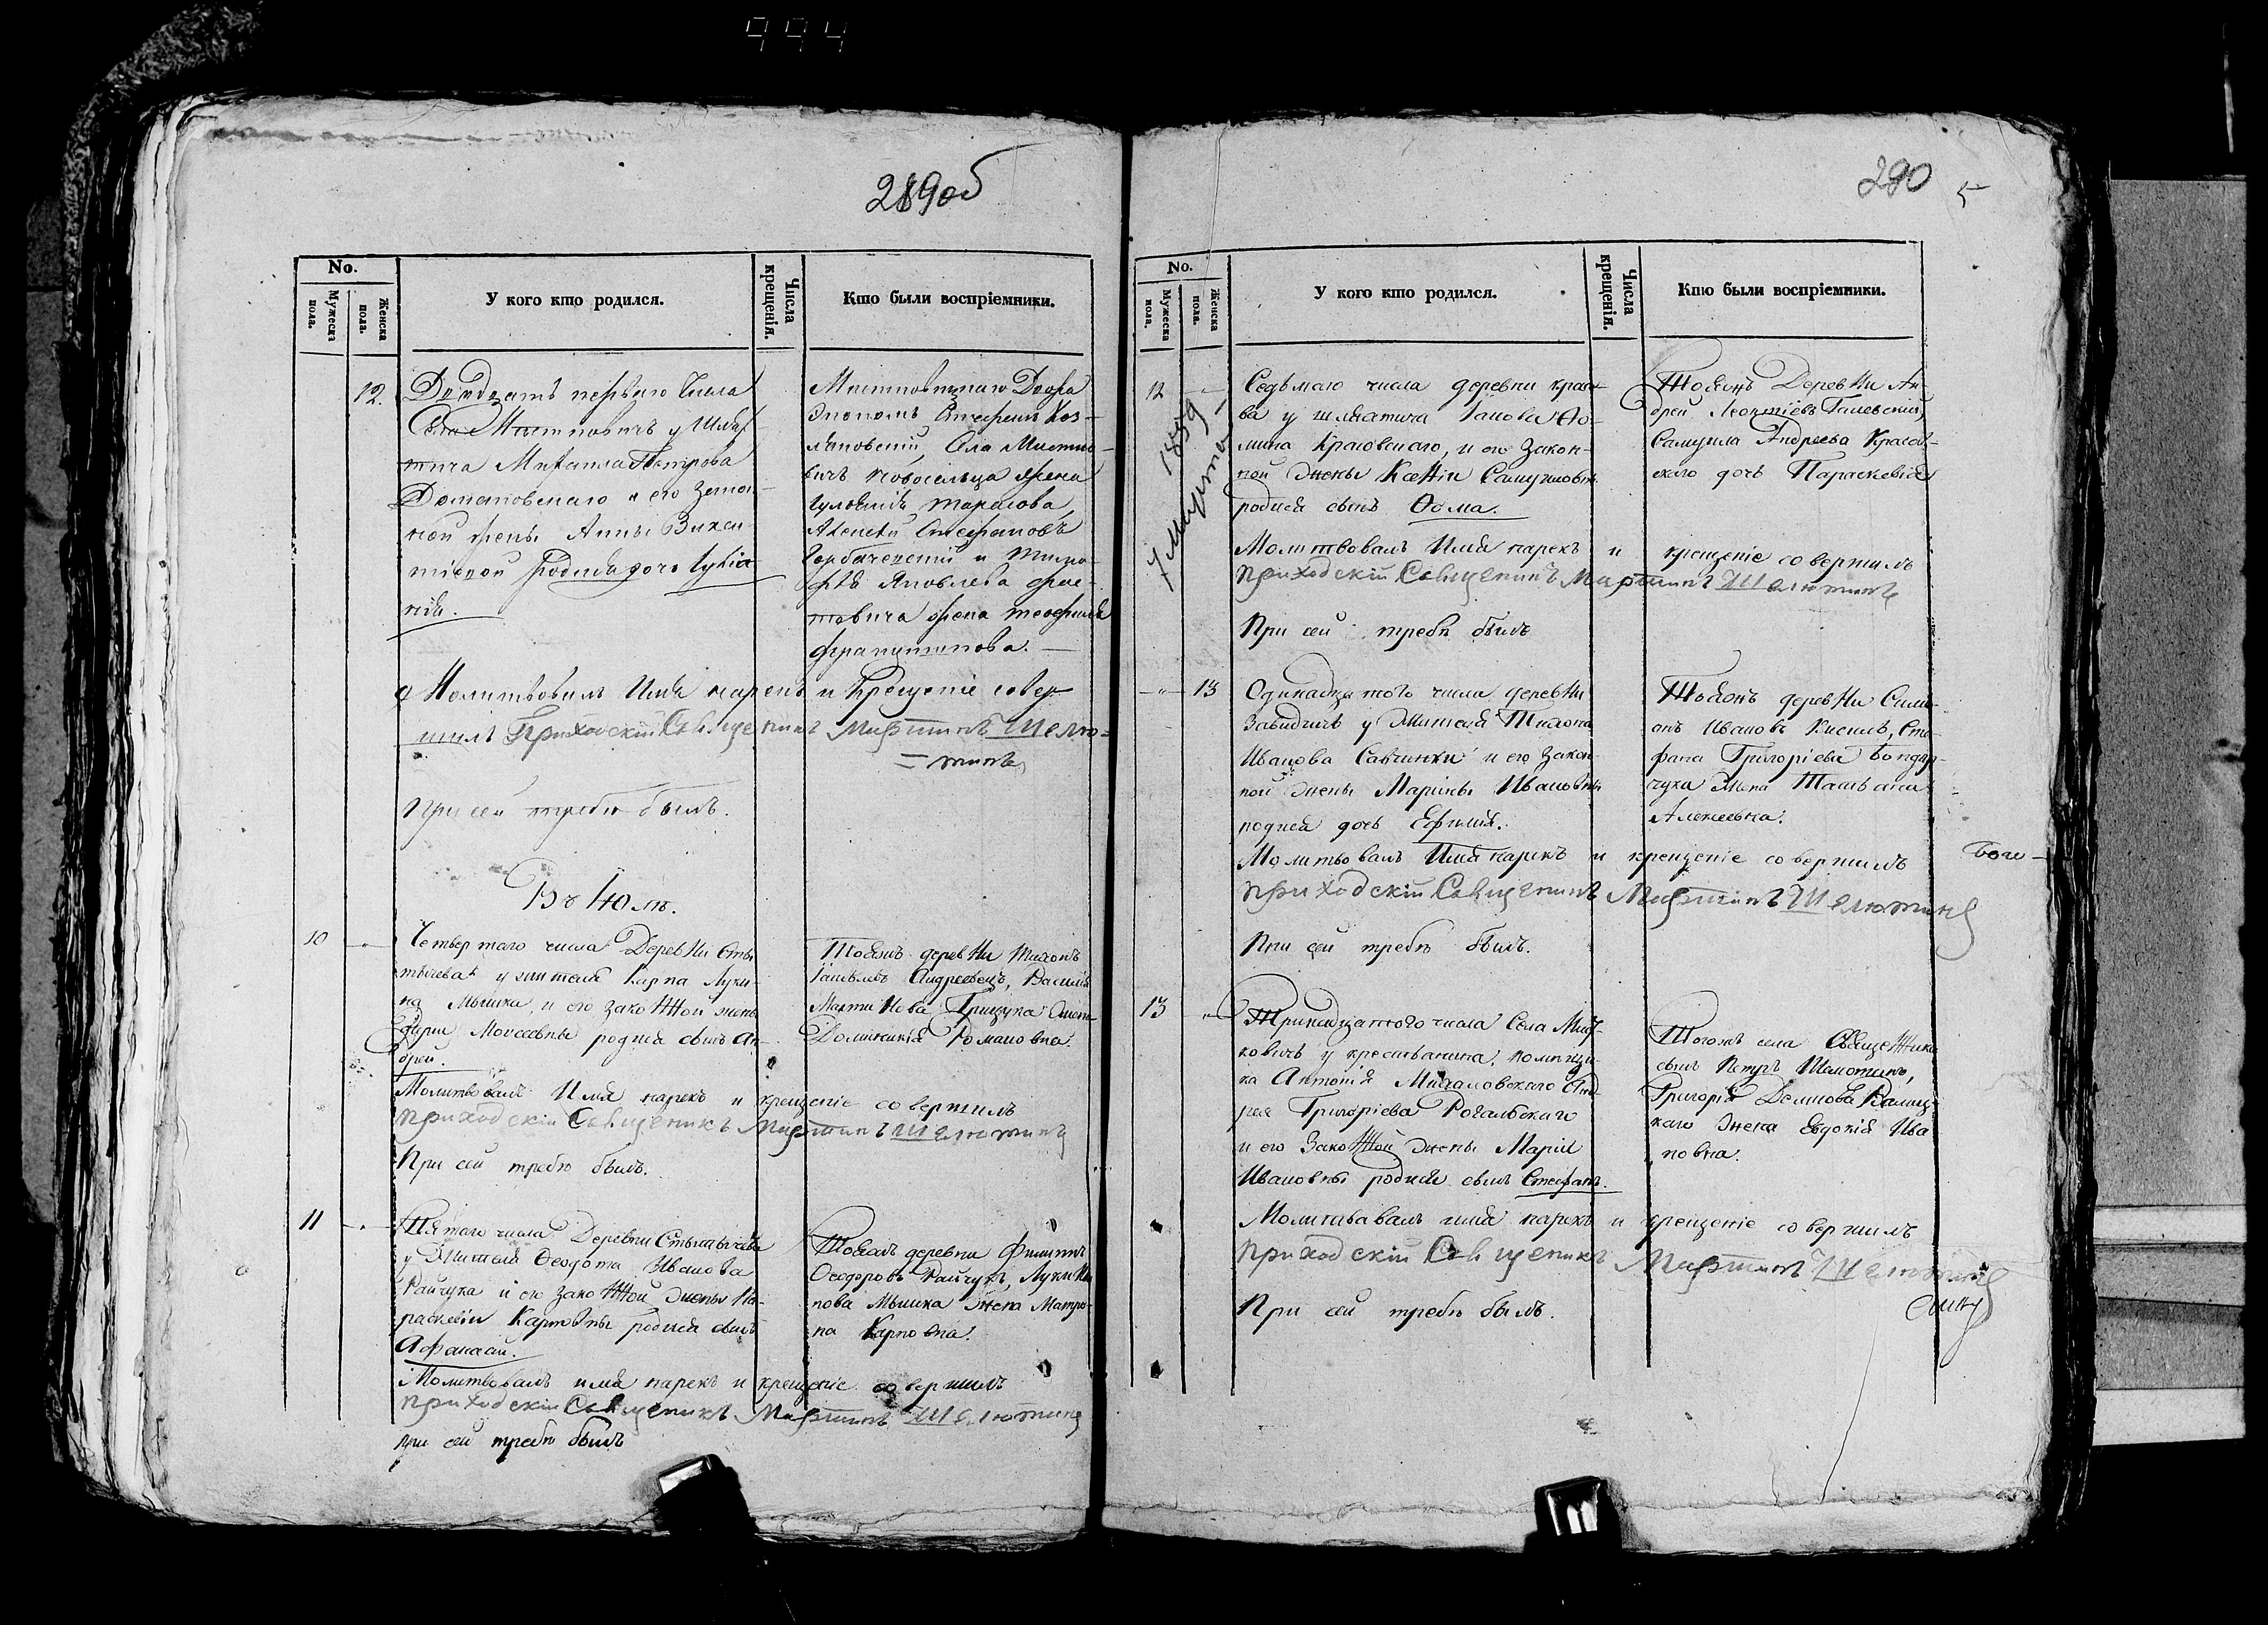 994
289об
No.
Мужеска пола.
Женска пола.
У кого кто родился.
Числа крещенія.
Кто были воспріемники.
12.
Двадцать перваго Числа
Села
тича Михаила Петрова
и его закон-
ной жены Анны
родися дочь Іулiа-
нія.
Двора
Экономъ Стефанъ Коз-
Села
жена
Тарасова,
Алексѣй Стефановъ
и
Яковлева
жена Теофила
Францишкова.
Молитвовалъ Имя нарекъ и Крещеніе совер-
шилъ Приходскій Священникъ Мартинъ Шелю-
= тинъ
При сей требѣ былъ.
Въ Юлѣ.
10
Четвертаго числа Деревни Сты-
тычева у жителя Карпа Луки-
на Мышка, и его законной жены
Дарiи Моисеевны родися сынъ Ан-
дрей.
Тоежъ деревни Тихонъ
Андреевецъ, Василія
Мартинова Грицука жена
Доминикія Романовна.
Молитвовалъ Имя нарекъ и крещеніе совершилъ
приходскій Священникъ Мартинъ Шелютинъ
При сей требѣ былъ.
11
Пятаго числа Деревни Стытычева
у Жителя Ѳеодота Иванова
Райчука и его законной жены Па-
раскевіи Карповны родися сынъ
Афанасій.
Тоежъ деревни Филиппъ
Ѳеодоровъ Райчукъ, Луки
пова Мышка жена Матро-
на Карповна.
Молитвовалъ имя нарекъ и крещеніе совершилъ
приходскій Священникъ Мартинъ Шелютинъ
при сей требѣ былъ
290
5
No.
Мужеска пола.
Женска пола.
У кого кто родился.
Числа крещенія.
Кто были воспріемники.
1859
12
Седьмаго числа деревни Красо-
ва у шляхтича Іакова Ѳо-
мина Красовскаго, и его закон-
ной жены Ксеніи Самуиловны
родися сынъ Ѳома.
Тоежъ Деревни Ан-
дрей Леонтіевъ Галевскій,
Самуила Андреева Красов-
скаго дочь Параскевія
Молитвовалъ Имя нарекъ и крещеніе совершилъ
приходскій Священникъ Мартинъ Шелютинъ
При сей требѣ былъ
13
Одинадцатого числа деревни
Завидчичъ у Жителя Тихона
Иванова Савчинки и его закон-
ной жены Марины Ивановны
родися дочь Ефимія.
Тоежъ деревни Сами-
онъ Ивановъ Киселъ, Сте-
фана Григоріева Бондар-
чука жена Татьяна
Алексеевна.
Молитвовалъ Имя нарекъ и крещеніе совершилъ
приходскій Священникъ Мартинъ Шелютинъ
При сей требѣ былъ.
13
Тринадцатого числа Села Мит-
ковичъ у крестьянина, помѣщи-
ка Антонія Михаловскаго Анд-
рея Григоріева Рогальскаго
и его законной жены Маріи
Ивановны родися сынъ Стефанъ.
Тогожъ села Священника
сынъ Петръ Шелютинъ,
Григорія
жена Евдокія Ива-
новна.
Молитвовалъ имя нарекъ и крещеніе совершилъ
приходскій Священникъ Мартинъ Шелютинъ
При сей требѣ былъ.